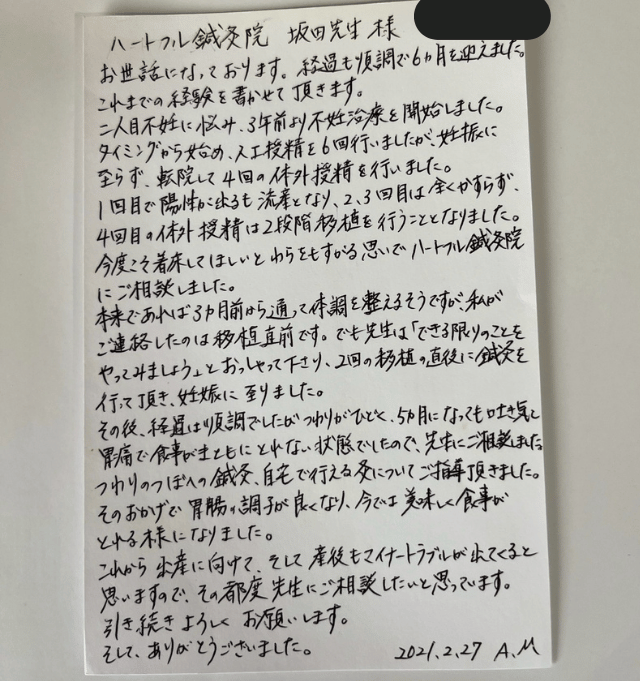 ハートフル鍼灸院 坂田先生 様
お世話になっております。経過も順調で6ヵ月を迎えました。
これまでの経験を書かせて頂きます。
二人目不妊に悩み、3年前より不妊治療を開始しました。
タイミングから始め、人工授精を6回行いましたが、妊娠に
至らず、転院して4回の体外授精を行いました。
1回目で陽性が出るも流産となり、2、3回目は全くかすらず、
4回目の体外授精は2段階移植を行うこととなりました。
今度こそ着床してほしいとわらをもすがる思いでハートフル鍼灸院
にご相談しました。
本来であれば3ヵ月前から通って体調を整えるそうですが、私が
ご連絡したのは移植直前です。でも先生は「できる限りのことを
やってみましょう」とおっしゃって下さり、2回の移植の直後に鍼灸を
行って頂き、妊娠に至りました。
その後、経過は順調でしたがつわりがひどく、5ヵ月になっても吐き気と
胃痛で食事がまともにとれない状態でしたので、先生にご相談しました。
つわりのつぼへの鍼灸、自宅で行える灸についてご指導頂きました。
そのおかげで胃腸の調子が良くなり、今では美味しく食事が
とれる様になりました。
これから出産に向けて、そして産後もマイナートラブルが出てくると
思いますので、その都度先生にご相談したいと思っています。
引き続きよろしくお願いします。
そして、ありがとうございました。 2021.2.27 A.M